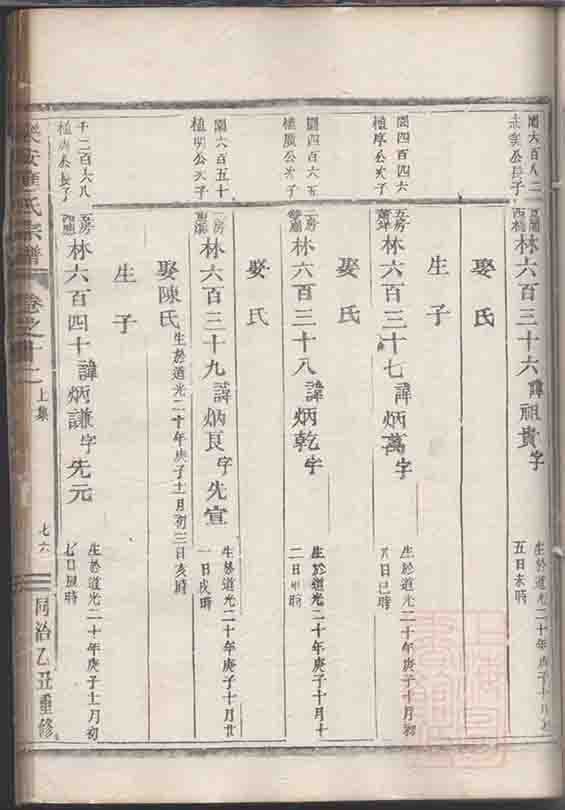 閏六百八二
公長子
林六百三十六諱祖貴字
生於道光二十年庚子十月初
五日未時
娶氏
生子
閏四百四六
植厚公次子
林六百三十七諱炳萬字
生於道光二十年庚子十月初
日巳時
娶氏
閏四百六五
植廣公次子
房
林六百三十八諱炳乾字
生於道光二十年庚子十月十
二日申時
娶氏
閏六百五十
植明公次子
房
林六百三十九諱炳良字先宣
生於道光二十年庚子十月廿
一日戌時
娶陳氏
生於道光二十年庚子十一月初三日亥時
生子
千二百六八
植公長子
房
林六百四十諱炳謙字先元
生於道光二十年庚子十一月初
七日時
氏宗譜
卷之十二
上集
七六
同治乙丑重修
上海圖書館藏